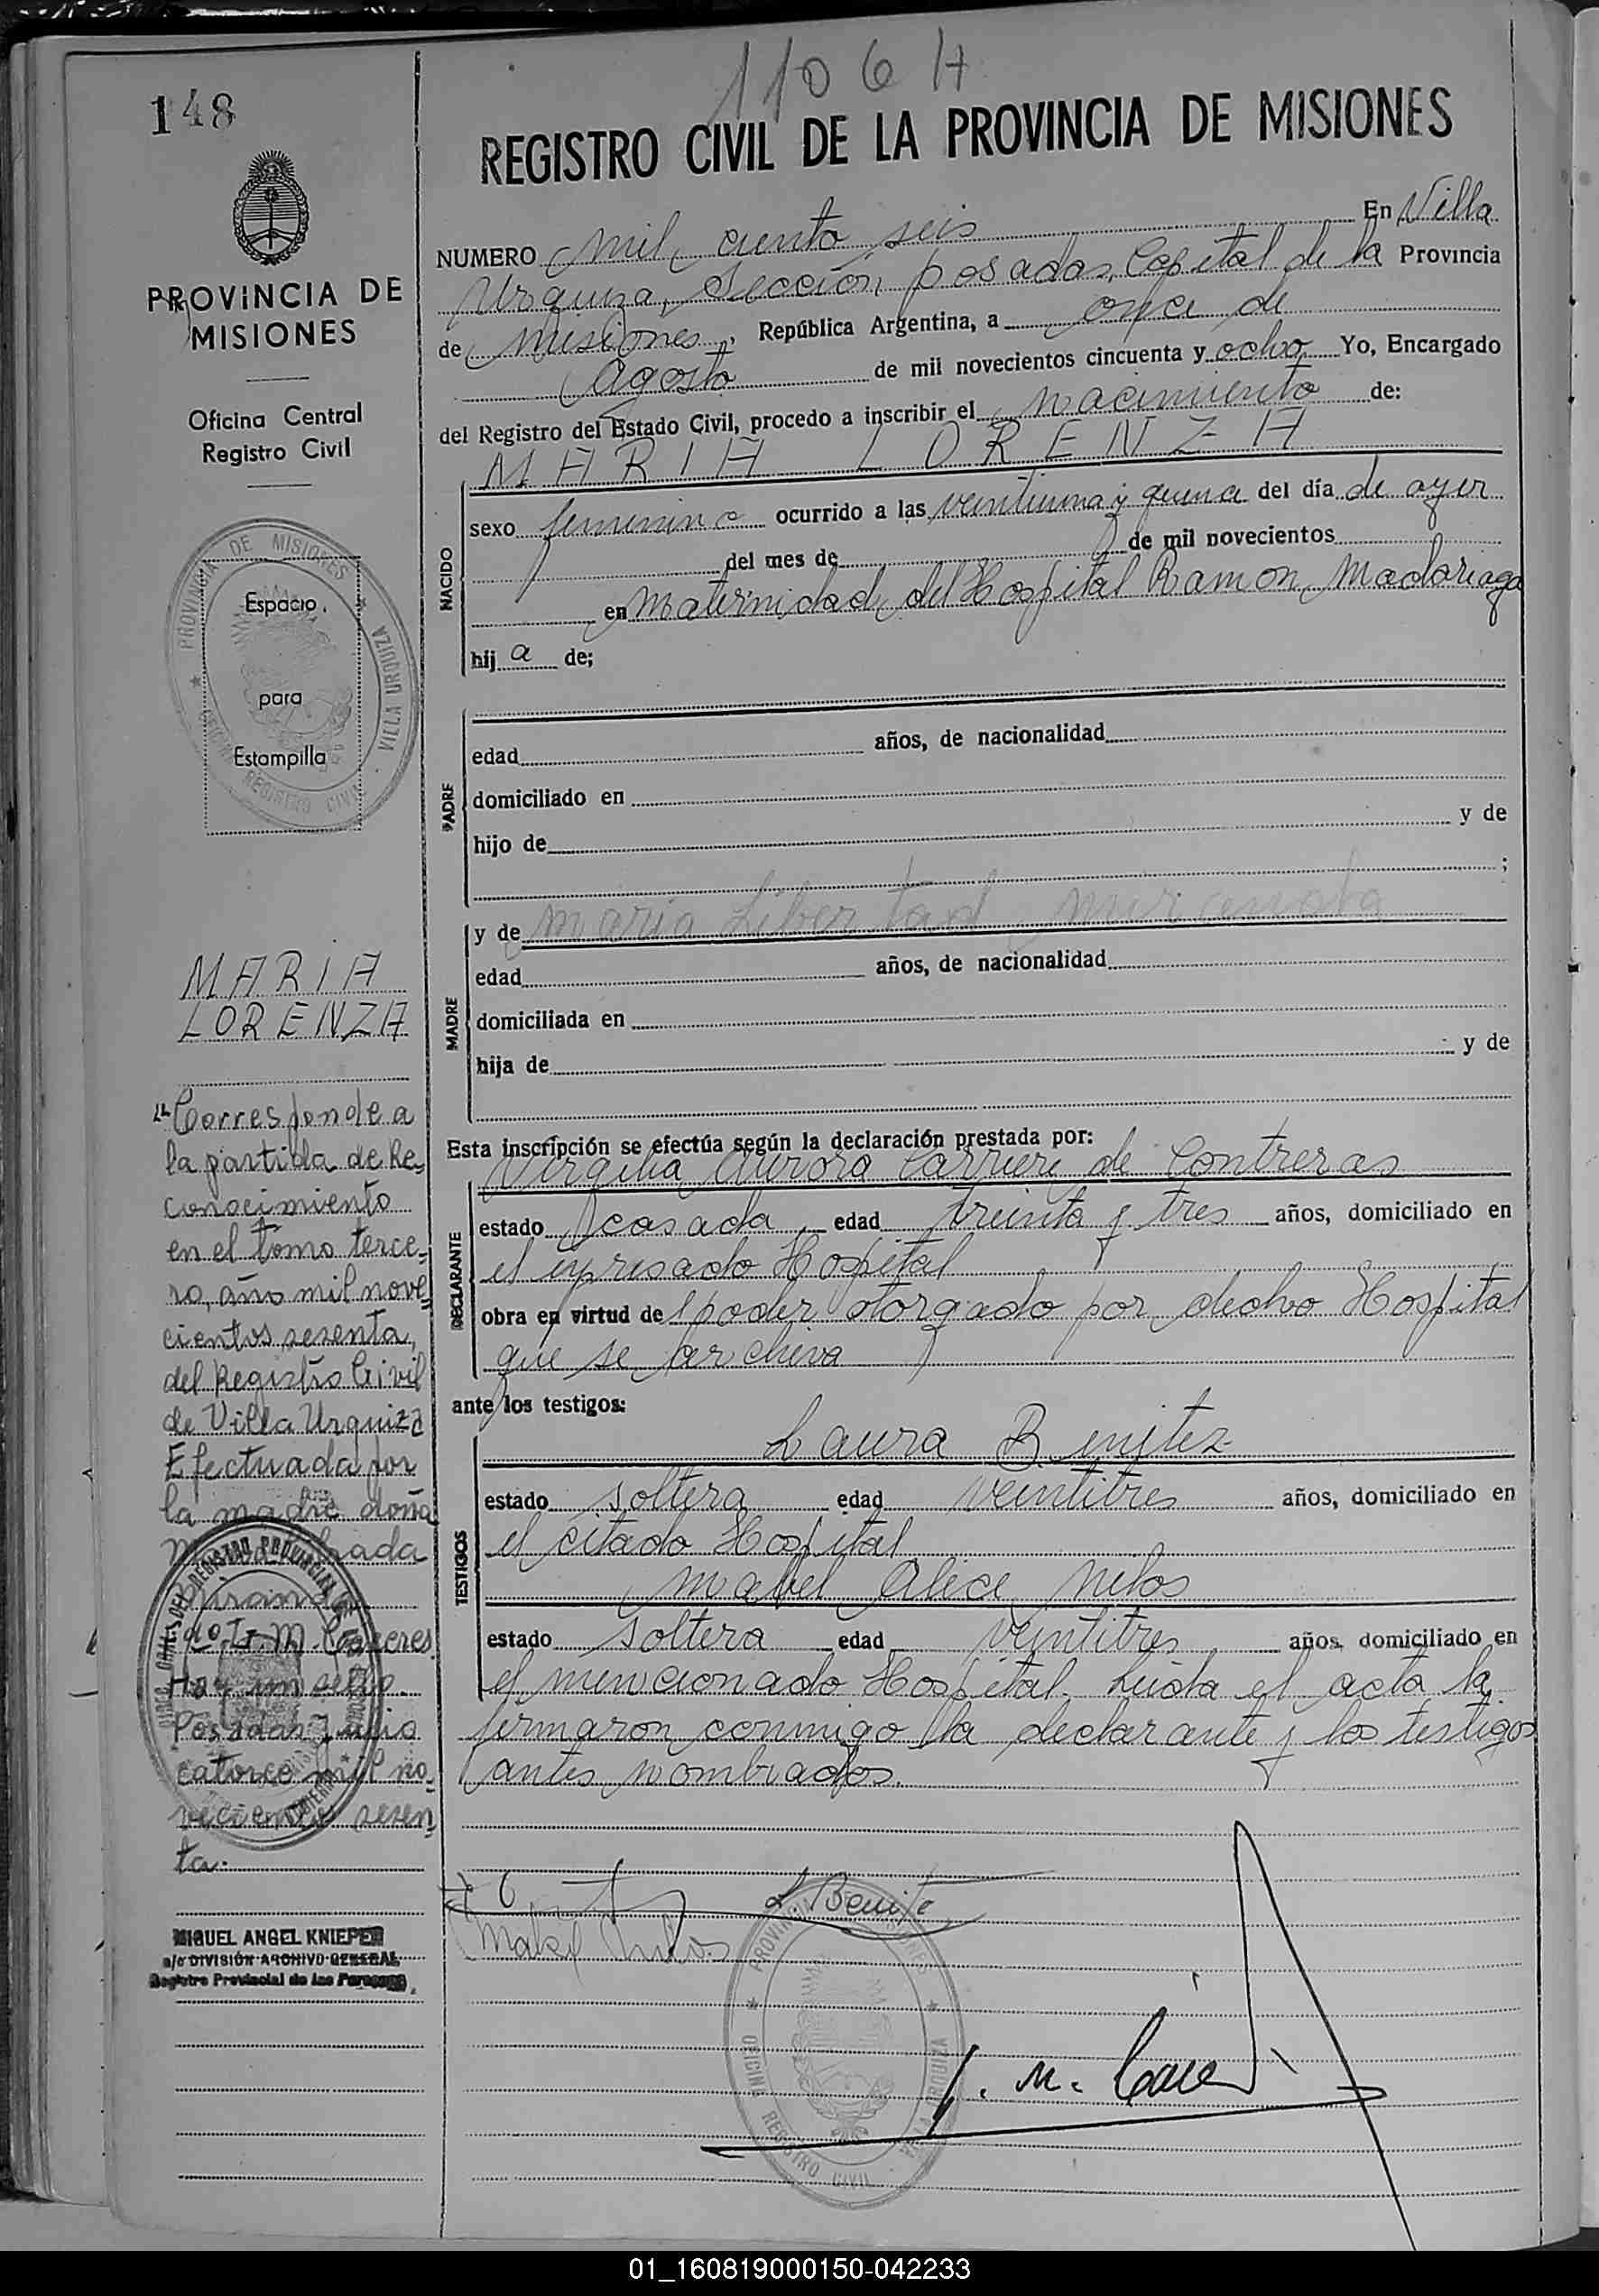 1106 H
148
REGISTRO CIVIL DE LA PROVINCIA DE MISIONES
PROVINCIA DE
MISIONES
Oficina Central
Registro Civil
PROVINCIA DE MISIONES
VILLA URQUIZA
REGISTRO CIVIL
Espacio
para
Estampilla
NUMERO mil ciento seis En Villa
Urquiza, Sección posadas, Capital de la Provincia
de Misiones, República Argentina, a once de
Agosto de mil novecientos cincuenta y ocho Yo, Encargado
del Registro del Estado Civil, procedo a inscribir el nacimiento de:
MARIA LORENZA
NACIDO
sexo femenino ocurrido a las veintiuna y quince del día de ayer
del mes de de mil novecientos
en Maternidad del Hospital Ramon Madariaga
hij a de;
PADRE
edad años, de nacionalidad
domiciliado en
hijo de y de
;
MADRE
y de maria Libertad
edad años, de nacionalidad
domiciliada en
hija de y de
MARIA
LORENZA
"Corresponde a
la partida de Re-
conocimiento
en el tomo terce-
ro, año mil nove-
cientos sesenta,
del Registro Civil
de Villa Urquiza
Efectuada por
la madre doña
do. I. M. Caceres
Hay un sello.
Posadas, Julio
catorce mil no-
vecientos sesen-
ta.
MIGUEL ANGEL KNIEPER
a/c DIVISIÓN ARCHIVO GENERAL
Registro Provincial de las Personas
Esta inscripción se efectúa según la declaración prestada por:
Virgilia Aurora Carriere de Contreras
DECLARANTE
estado casada, edad treinta y tres años, domiciliado en
el expresado Hospital
obra en virtud de poder otorgado por dicho Hospital
que se archiva
ante los testigos:
TESTIGOS
Laura Benitez
estado soltera edad veintitres años, domiciliado en
el citado Hospital
Mabel Alice
estado soltera edad veintitres años, domiciliado en
el mencionado Hospital. Leida el acta la
firmaron conmigo la declarante y los testigos
antes nombrados.
L. Benite
Mabel
PROVINCIA
OFICINA REGISTRO CIVIL
01_160819000150-042233